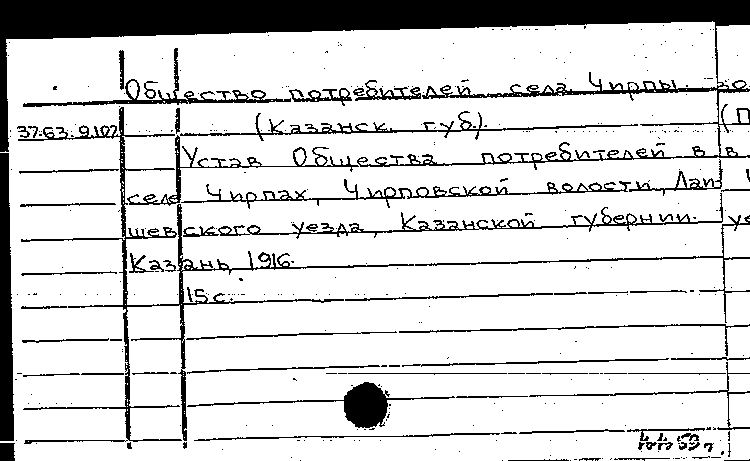 Общество потребителей села Чирпы.
37.63.9.107
(Казанск. губ).
Устав Общества потребителей в
селе Чирпах, Чирповской волости, Лаи-
шевского уезда, Казанской губернии.
Казань, 1916.
15 с.